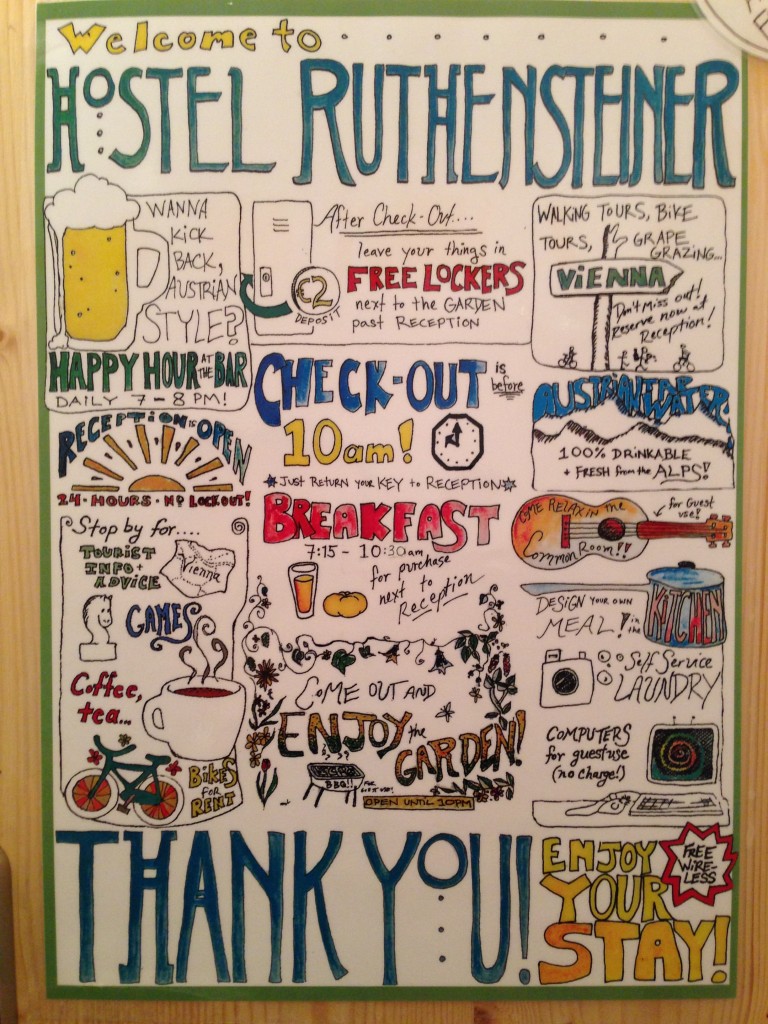 Welcome to
HOSTEL RUTHENSTEINER
WANNA
KICK
BACK,
AUSTRIAN
STYLE?
HAPPY HOUR AT THE BAR
DAILY 7 – 8 PM!
After Check-Out....
leave your things in
FREE LOCKERS
next to the GARDEN
past RECEPTION
€2
DEPOSIT
WALKING TOURS, BIKE
TOURS, GRAPE
GRAZING...
VIENNA
Don't miss out!
Reserve now at
Reception!
CHECK-OUT is before
10am!
JUST RETURN YOUR KEY to RECEPTION
AUSTRIAN TAP WATER
100% DRINKABLE
+ FRESH from the ALPS!
RECEPTION IS OPEN
24 · HOURS · NO LOCKOUT!
BREAKFAST
7:15 – 10:30am
for purchase
next to
Reception
COME RELAX IN the
Common Room!!
for Guest
use!
Stop by for....
TOURIST
INFO +
ADVICE
Vienna
GAMES
Coffee,
tea...
BIKES
FOR
RENT
DESIGN YOUR OWN
MEAL! in the
KITCHEN
Self Service
LAUNDRY
COMPUTERS
for guest use
(no charge!)
COME OUT AND
ENJOY the
GARDEN!
BBQ!!
OPEN UNTIL 10PM
THANK YOU!
ENJOY
YOUR
STAY!
FREE
WIRE-
LESS